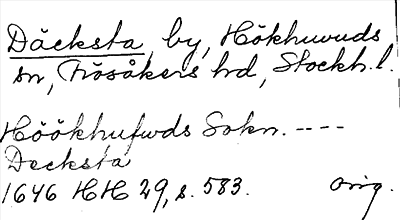 Däcksta, by, Hökhuvuds
sn, Frösåkers hd, Stockh. l.
Höökhufwds Sokn. ----
Decksta
1646 HH 29, s. 583. orig.